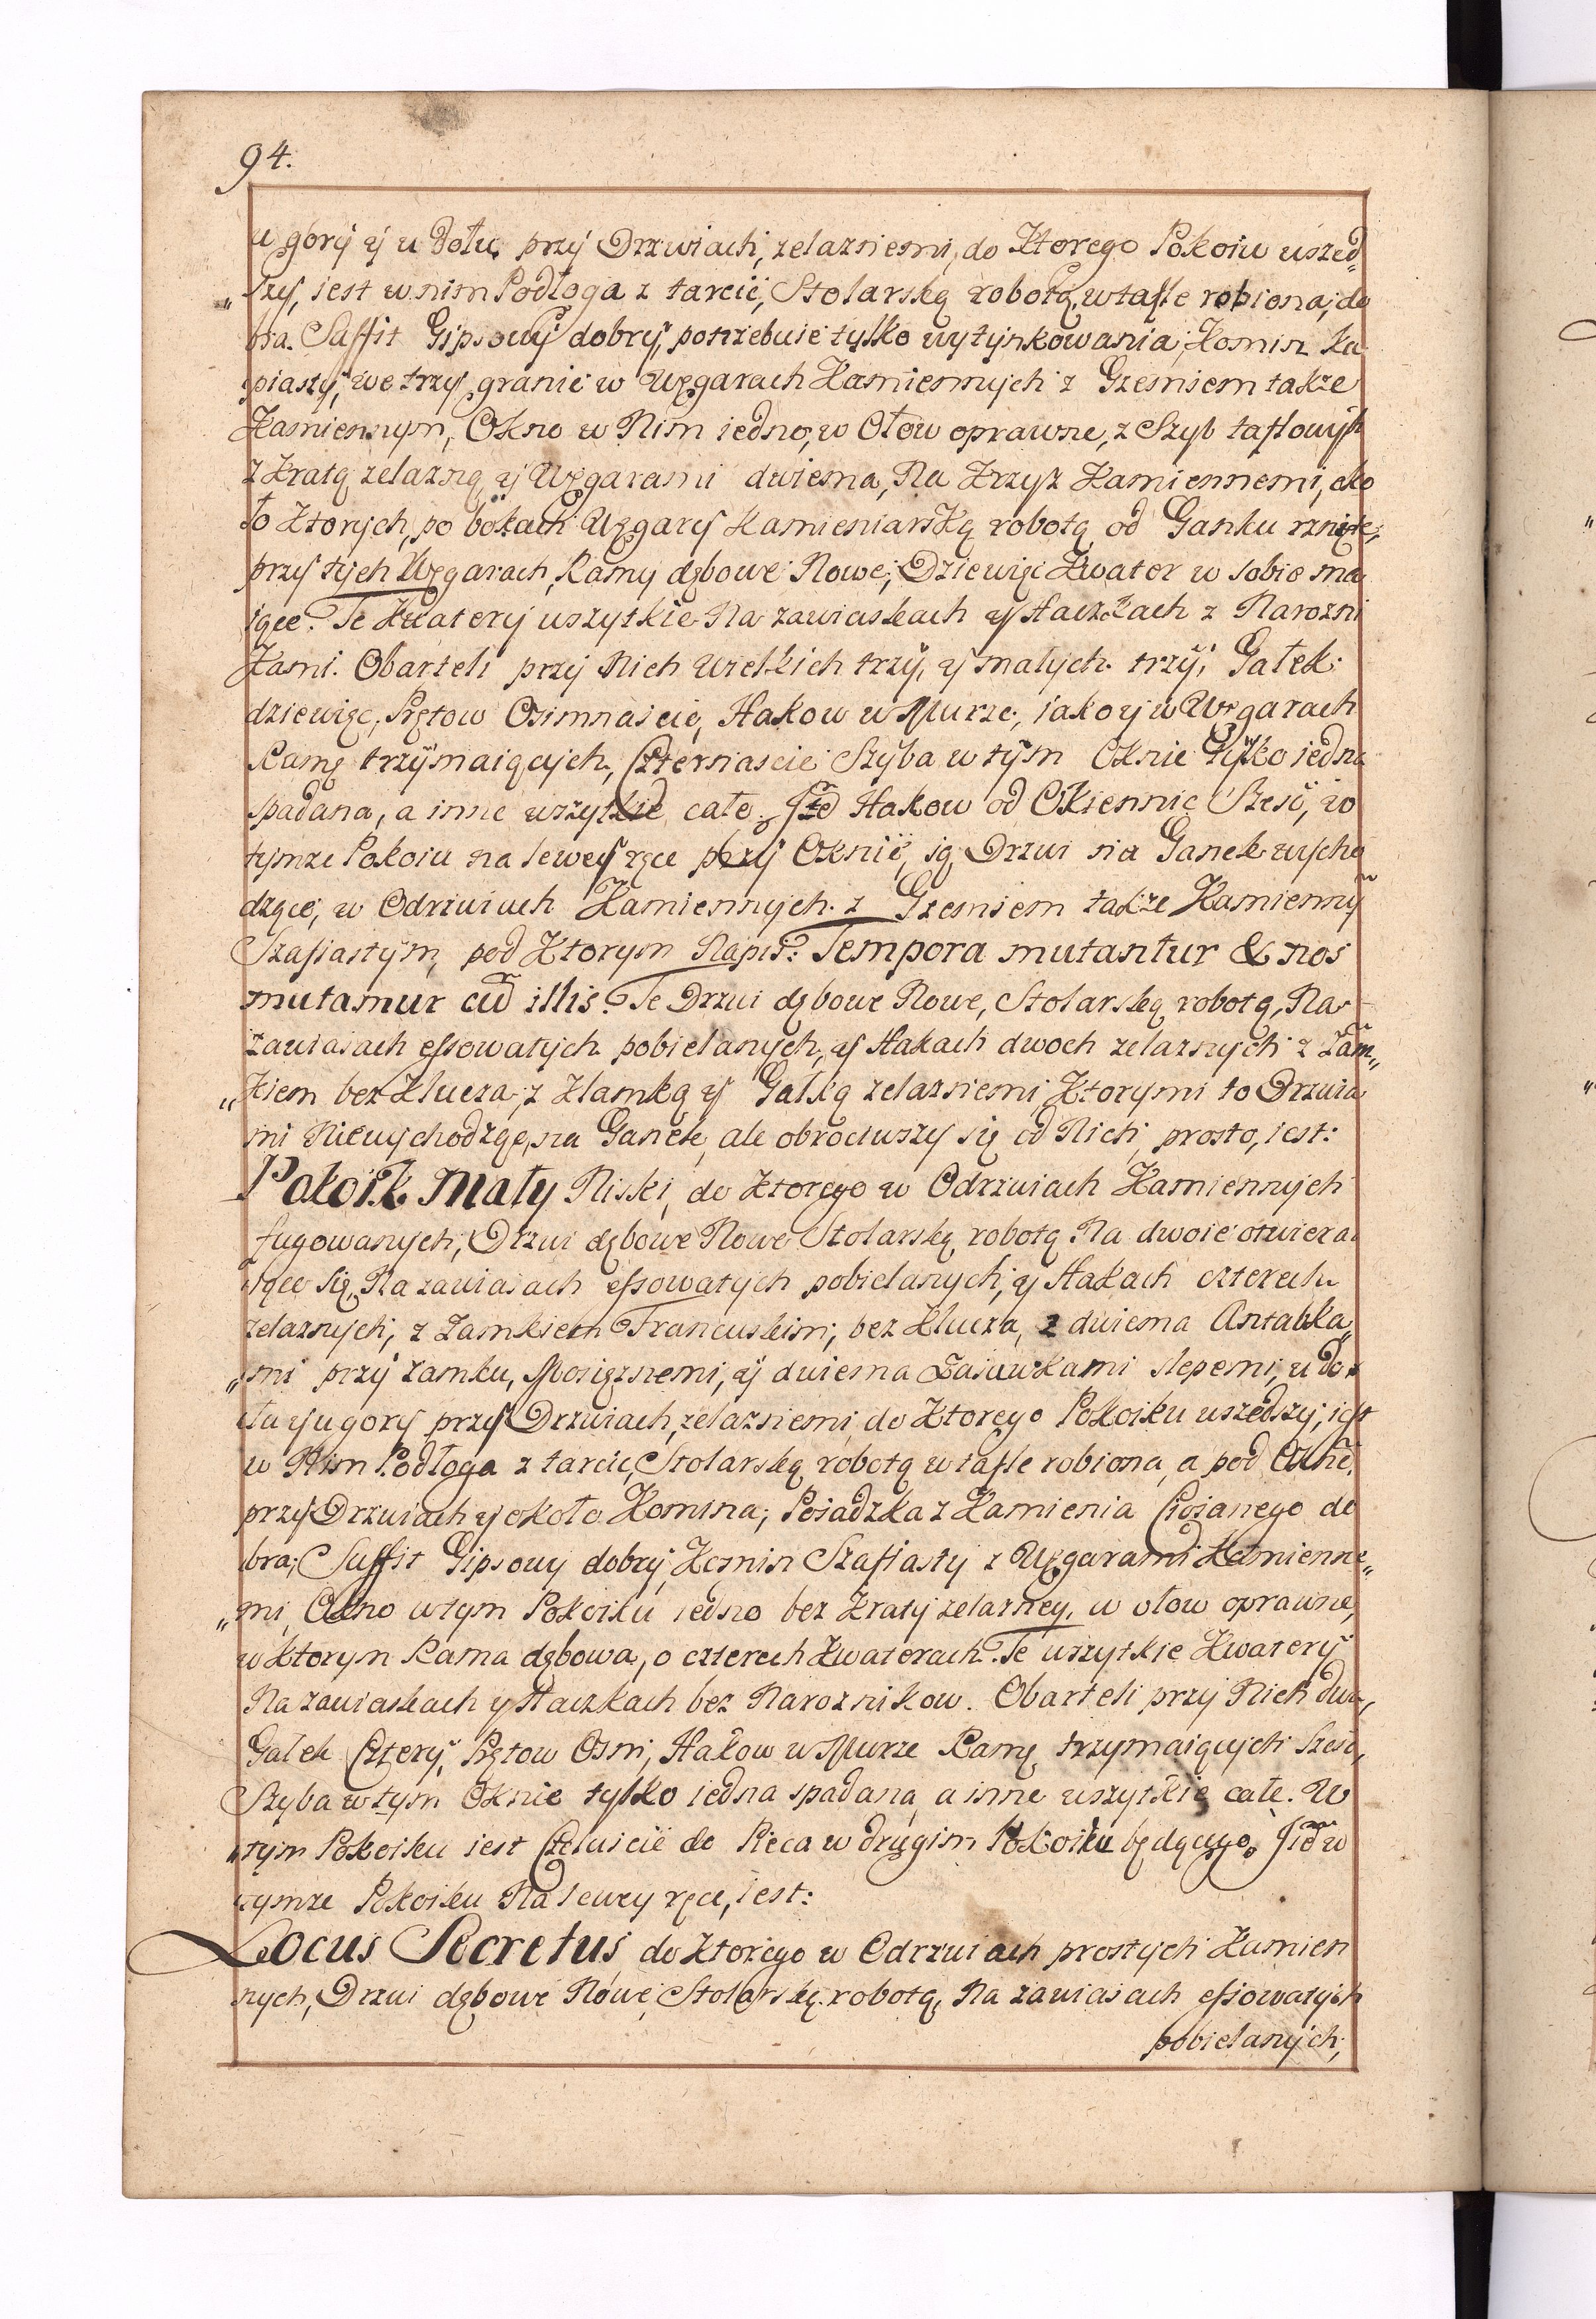 94.
u gory ÿ u Dołu przÿ Drzwiach, zelaznemi, do Ktorego Pokoiu wszed„
„szÿ, iest w nim Podłoga z tarcic, Stolarską robotą w tafle robiona, do
bra. Suffit Gipsowÿ dobrÿ, potrzebuie tylko wytÿnkowania, Komin Ka
piastÿ, we trzÿ granie w Węgarach Kamiennych z Gzemsem takze
Kamiennym, Okno w Nim iedno, w Ołow oprawne, z Szyb taflowych
z Kratą zelazną ÿ Węgarami dwiema, Na Krzyz Kamiennemi, oko
ło Ktorych, po bokach Węgarÿ Kamieniarską robotą od Ganku rznięte,
przÿ tÿch Węgarach, Ramy dębowe Nowe, Dziewięć Kwater w sobie ma
iące. Te Kwaterÿ wszytkie Na zawiaskach ÿ Haczkach z Narozni
Kami. Obarteli przÿ Nich wielkich trzÿ, ÿ małych trzÿ, Gałek
dziewięc, Prętow Osimnaście, Hakow w Murze, iako ÿ w Węgarach
Ramę trzÿmaiących, Czternascie Szÿba w tÿm Oknie tylko iedna
spadana, a inne wszytkie całe. Hakow od Okiennic Szesc, w
tymze Pokoiu na lewey ręce przÿ Oknie, są Drzwi na Ganek wycho
dzące, w Odrzwiach Kamiennych z Gzemsem takze Kamiennÿ
Szafiastÿm, pod Ktorym Napis: Tempora mutantur & nos
mutamur cũ illis. Te Drzwi dębowe Nowe, Stolarską robotą, Na
zawiasach essowatych pobielanych, ÿ Hakach dwoch zelaznych z Zam„
„kiem bez Klucza, z Klamką ÿ Gałką zelaznemi, Ktorymi to Drzwia
mi Niewychodząc, na Ganek, ale obrociwszy się od Nich, prosto, iest:
Pokoik Mały Niski, do Ktorego w Odrzwiach Kamiennych
fugowanych, Drzwi dębowe Nowe Stolarską robotą Na dwoie otwiera
iące się, Na zawiasach essowatych pobielanych, ÿ Hakach czterech
zelaznych, z Zamkiem Francuskim, bez Klucza, z dwiema Antabka„
„mi przÿ zamku, Mosięznemi, ÿ dwiema Zasuwkami slepemi, u do
łu ÿ u gory przÿ Drzwiach, zelaznemi, do Ktorego Pokoiku wszedszy, iest
w Nim Podłoga z tarcic, Stolarską robotą w tafle robiona, a pod Oknẽ,
przÿ Drzwiach ÿ około Komina, Posadzka z Kamienia Ciosanego do
bra, Suffit Gipsowy dobrÿ, Komin Szafiasty z Węgarami Kamienne„
„mi, Okno w tym Pokoiku iedno bez Kratÿ zelazney, w ołow oprawne,
w Ktorym Rama dębowa, o czterech Kwaterach. Te wszytkie Kwaterÿ
Na zawiaskach ÿ Haczkach bez Naroznikow. Obarteli przÿ Nich dwa,
Gałek Cztery, Prętow Osm, Hakow w Murze Ramę trzymaiących Szesc,
Szyba w tym Oknie tylko iedna spadana, a inne wszytkie całe. W
tym Pokoiku iest Czeluscie do Pieca w drugim Pokoiku będącego. w
tymze Pokoiku Na lewey ręce, iest:
Locus Secretus, do Ktorego w Odrzwiach prostych Kamien
nych, Drzwi dębowe Nowe, Stolarską robotą, Na zawiasach essowatych
pobielanych,